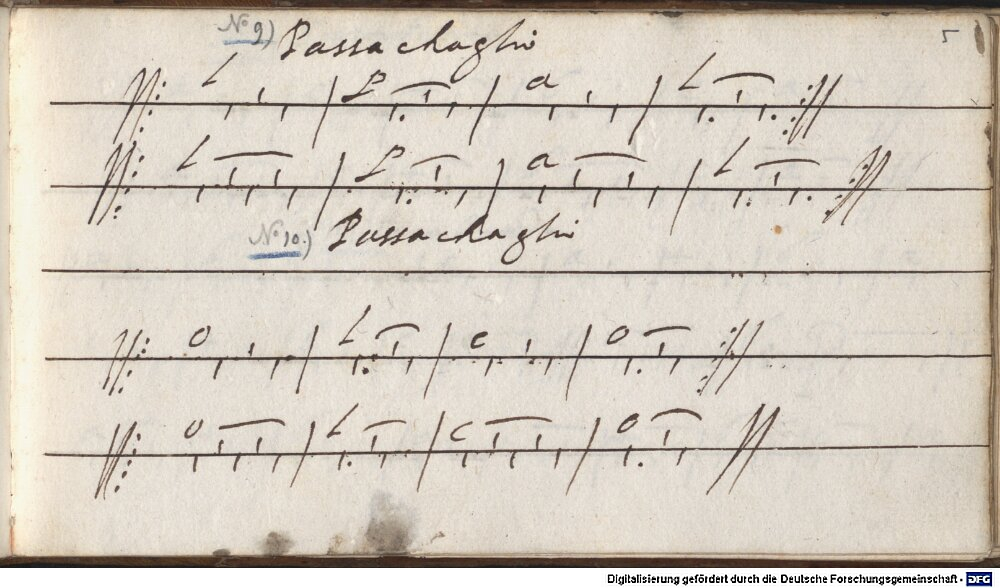 No 9) Passachaglii
5
L P a L
L P a L
No 10.) Passachaglii
O L C O
O L C O
Digitalisierung gefördert durch die Deutsche Forschungsgemeinschaft - DFG